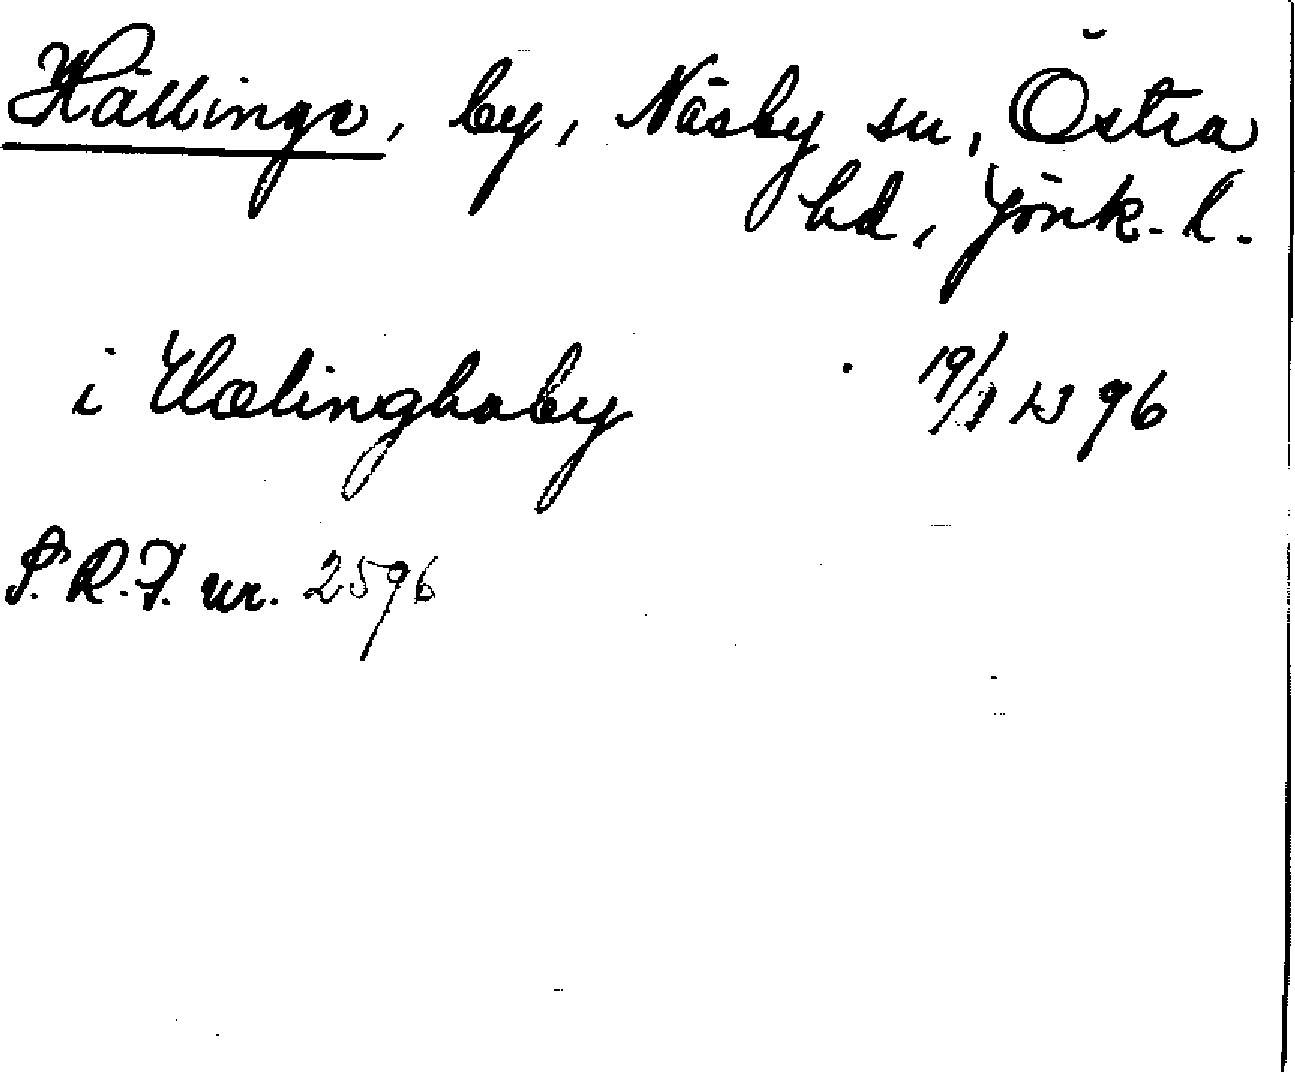 Hällinge, by, Näsby sn, Östra
hd, Jönk. l.
i Hælinghaby 19/1 1396
nr. 2596